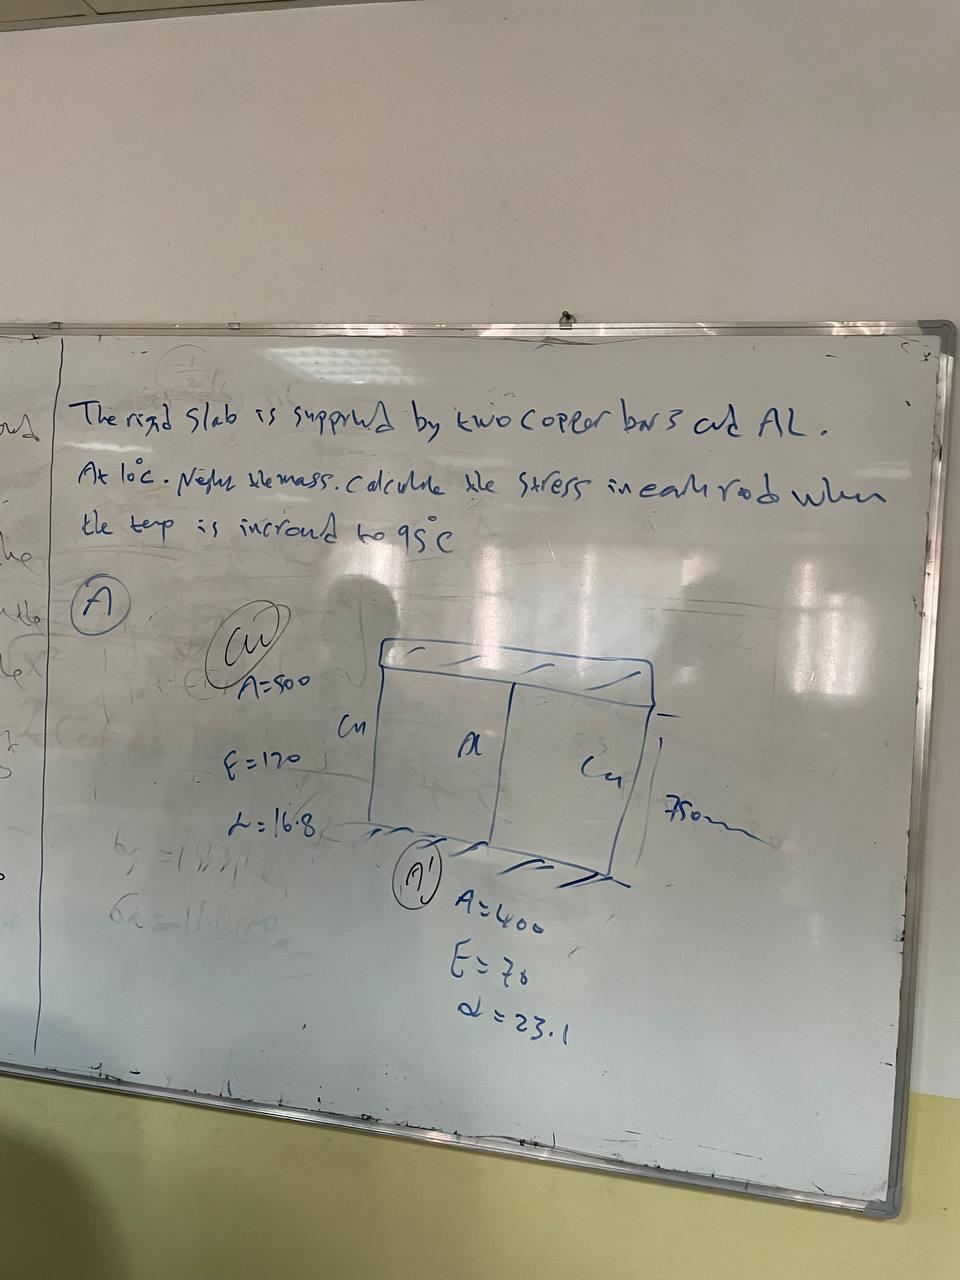 The rigid slab is supported by two copper bars and AL.
At 10°c. Neglect the mass. Calculate the stress in each rod when
the temp is increased to 95°C
A
Cu
A=500
Cu
Al
Cu
E=120
750mm
α=16.8
Al
A=400
E=70
α=23.1